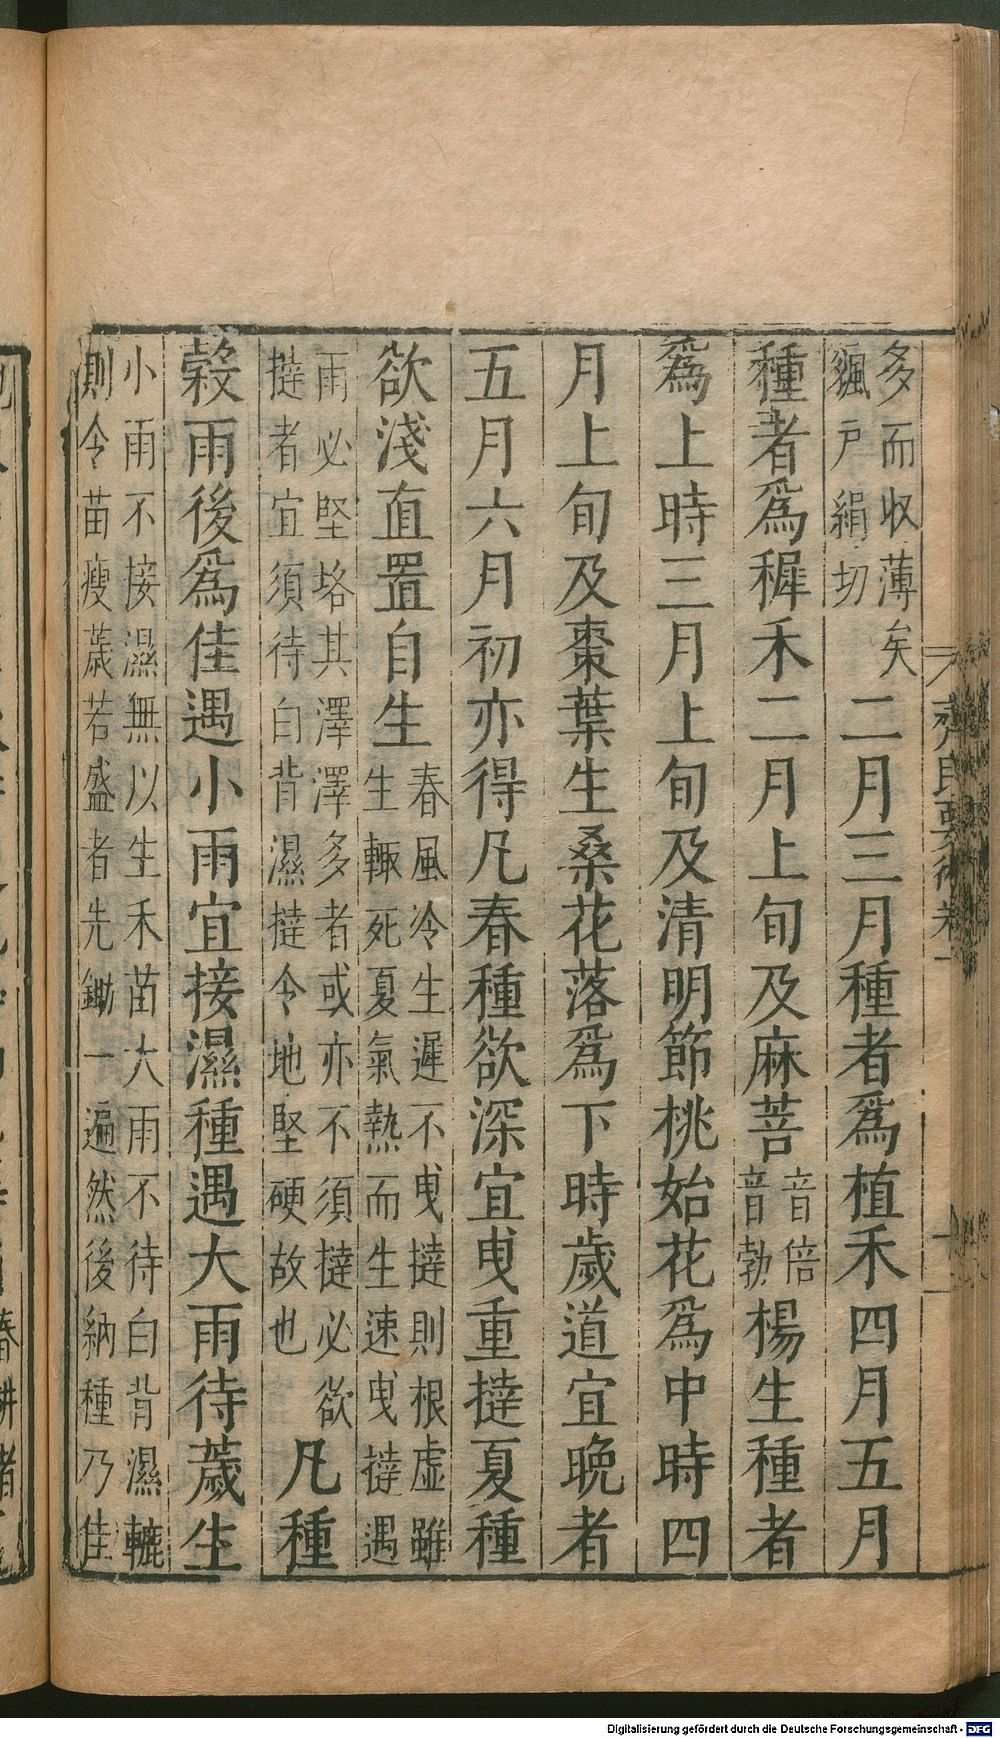 齊民要術卷一
多而收薄矣
戸絹切
二月三月種者爲植禾四月五月
種者爲穉禾二月上旬及麻菩
音倍
音勃
楊生種者
爲上時三月上旬及清明節桃始花爲中時四
月上旬及棗葉生桑花落爲下時歲道宜晚者
五月六月初亦得凡春種欲深宜曳重撻夏種
欲淺直置自生
春風冷生遲不曳撻則根虛雖
生輙死夏氣熱而生速曳撻遇
雨必堅垎其澤澤多者或亦不須撻必欲
撻者宜須待白背濕撻令地堅硬故也
凡種
榖雨後爲佳遇小雨宜接濕種遇大雨待薉生
小雨不接濕無以生禾苗大雨不待白背濕轆
則令苗瘦薉若盛者先鋤一遍然後納種乃佳
春耕者
Digitalisierung gefördert durch die Deutsche Forschungsgemeinschaft - DFG